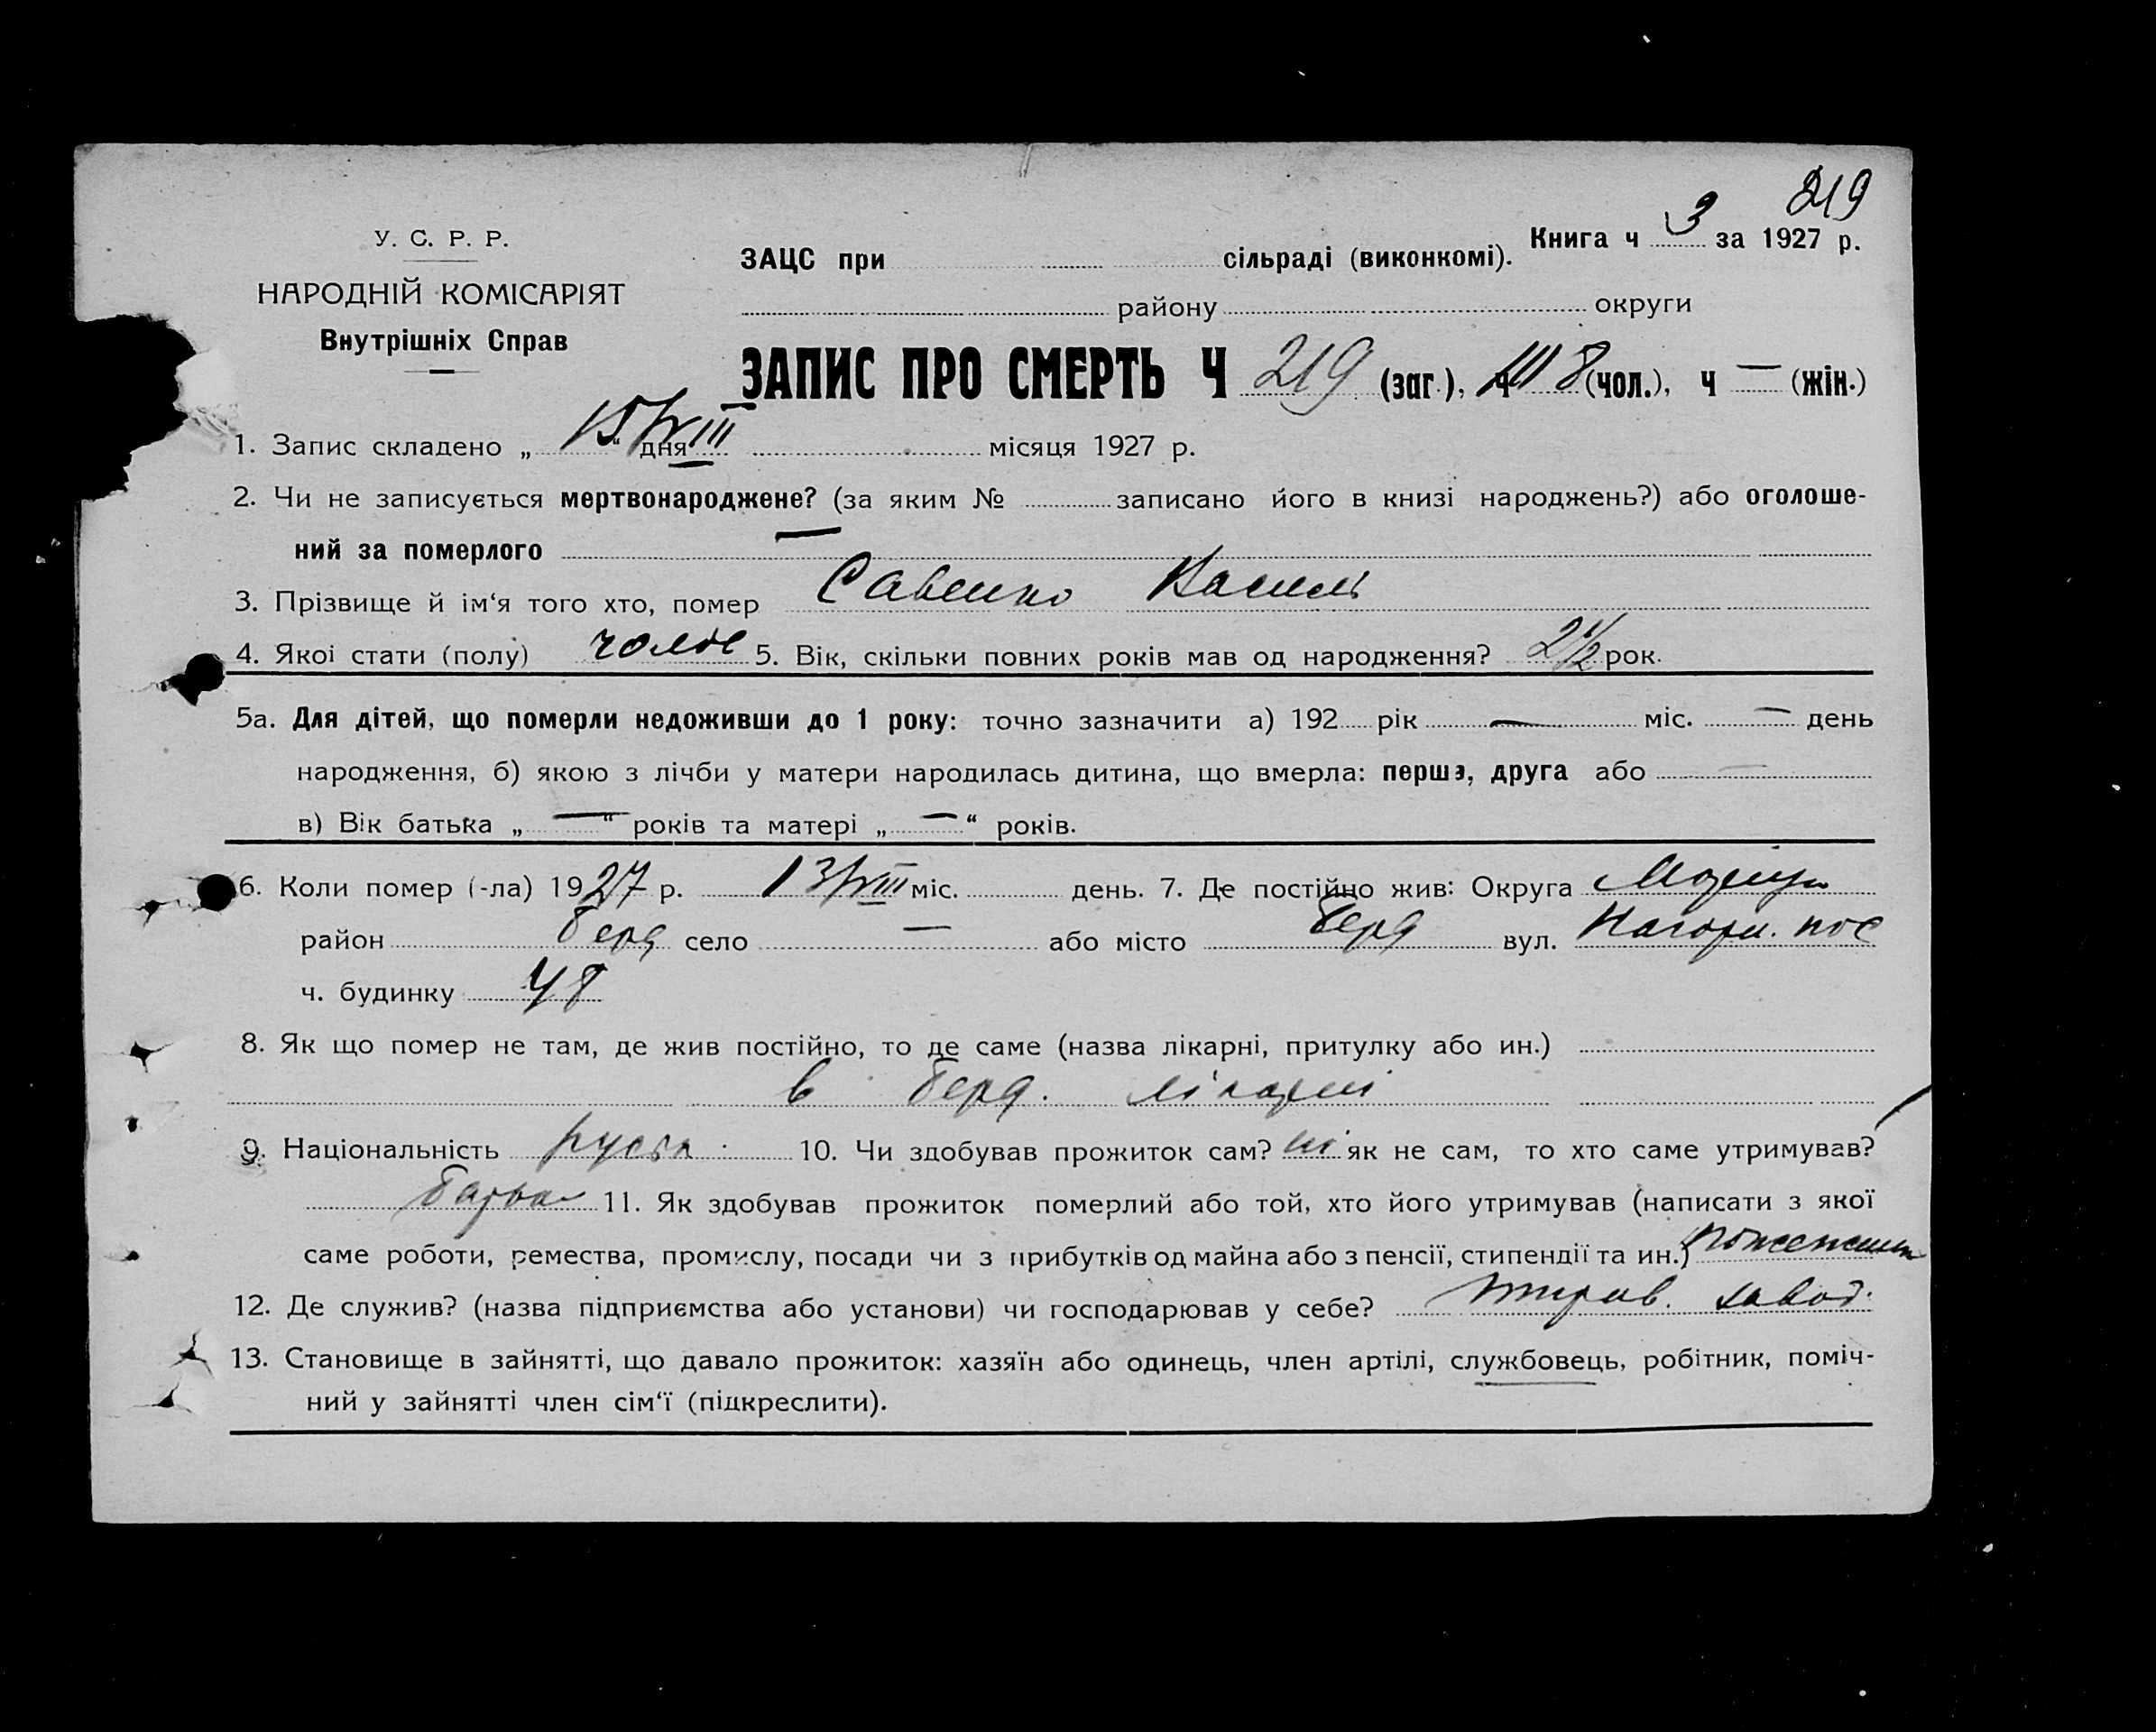 219
У. С. Р. Р.
НАРОДНІЙ КОМІСАРІЯТ
Внутрішніх Справ
Книга ч 3 за 1927 р.
ЗАЦС при сільраді (виконкомі).
району округи
ЗАПИС ПРО СМЕРТЬ Ч 219 (заг.), ч 118 (чол.), ч — (жін.)
1. Запис складено „15/VIII“ дня місяця 1927 р.
2. Чи не записується мертвонароджене? (за яким № записано його в книзі народжень?) або оголоше-
ний за померлого —
3. Прізвище й ім‘я того хто, помер Савенко Василь
4. Якої стати (полу) чолов 5. Вік, скільки повних років мав од народження? 2 1/2 рок.
5а. Для дітей, що померли недоживши до 1 року: точно зазначити а) 192 рік — міс. — день
народження, б) якою з лічби у матери народилась дитина, що вмерла: перша, друга або —
в) Вік батька „—“ років та матері „—“ років.
6. Коли помер (-ла) 1927 р. 13/VIII міс. день. 7. Де постійно жив: Округа Маріуп
район Берд село — або місто Берд вул. Нагорн. пос
ч. будинку 48
8. Як що помер не там, де жив постійно, то де саме (назва лікарні, притулку або ин.)
в Берд. лікарні
9. Національність руськ 10. Чи здобував прожиток сам? ні як не сам, то хто саме утримував?
батько 11. Як здобував прожиток померлий або той, хто його утримував (написати з якої
саме роботи, ремества, промислу, посади чи з прибутків од майна або з пенсії, стипендії та ин.)
12. Де служив? (назва підприємства або установи) чи господарював у себе? завод.
13. Становище в зайнятті, що давало прожиток: хазяїн або одинець, член артілі, службовець, робітник, поміч-
ний у зайнятті член сім‘ї (підкреслити).